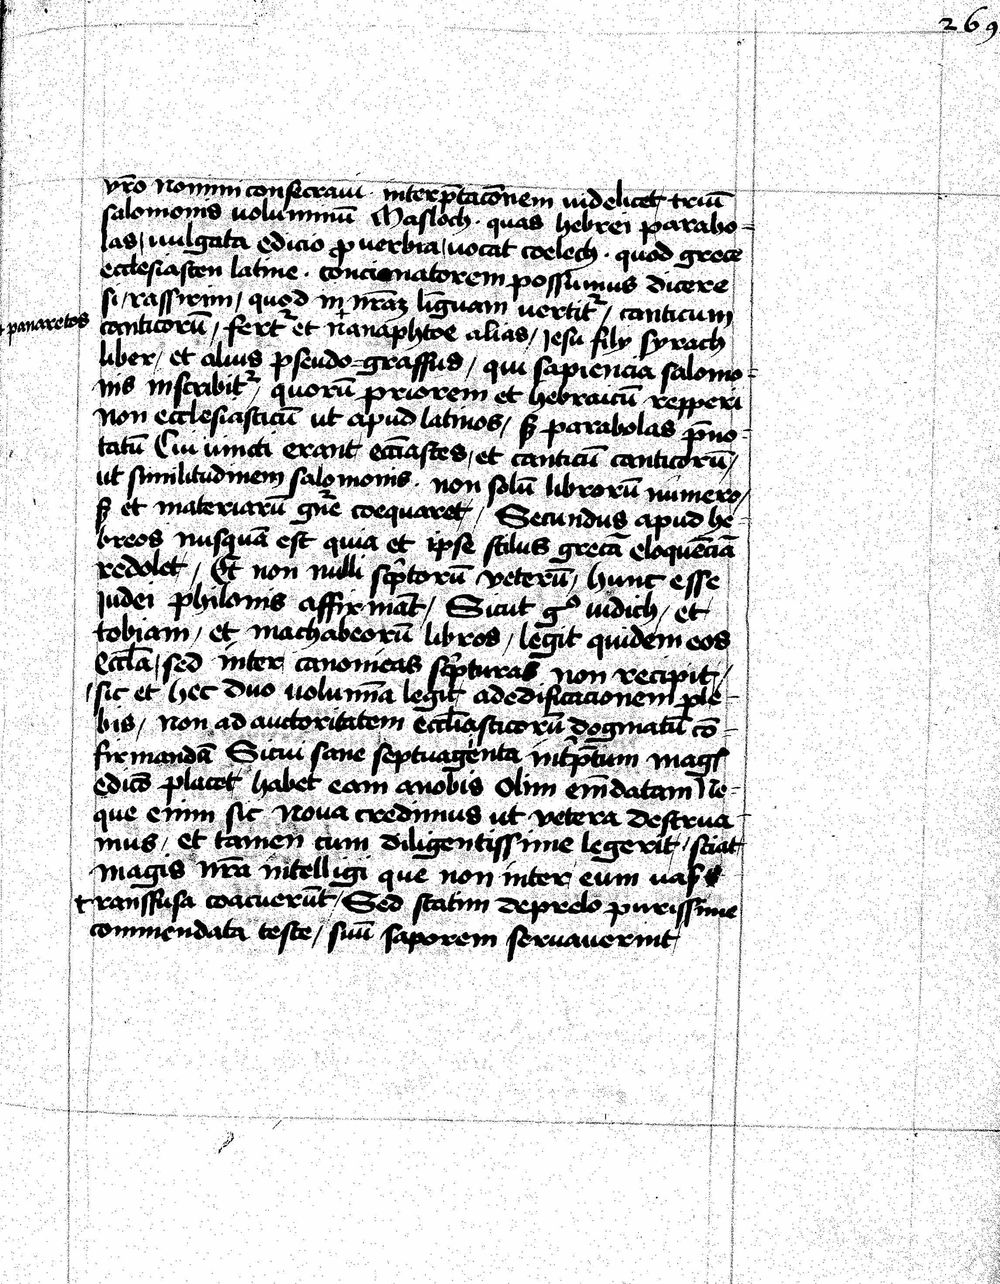 269
vr̄o nomini consecraui · interp̄tac̄onem uidelicet triū
salomonis uoluminū Masloch · quas hebrei parabo-
las / uulgata edicio ꝓverbia / uocat coelech · quod grece
ecclesiasten latine · concionatorem possumus dicere
si / rassirim / quod in nr̄aꝫ linguam vertitᷣ / canticum
canticorū / fertᷣ et nanaphtoe alias / Jesu filij syrach
+ panaretos
liber / et alius pseudo-graffus / qui sapiencia salomo-
nis inscribitᷣ / quorū priorem et hebraicū repperi
non ecclesiasticū ut apud latinos / sꝫ parabolas p̄no-
tatū Cui iuncti erant ecc̄iastes / et canticū canticorū /
ut similitudinem salomonis · non solū librorū numero /
sꝫ et materiarū gn̄e coequaret / Secundus apud he-
breos nusquā est quia et ipse stilus grecā eloquēciā
redolet / Et non nulli sc̄ptorū veterū / hunc esse
Judei philonis affirmāt / Sicut gᵒ iudich / et
tobiam / et machabeorū libros / legit quidem eos
Eccl̄a / sed inter canonicas sc̄pturas non recipit /
/ sic et hec duo volumīa legit ad edificacionem ple-
bis / non ad auctoritatem eccl̄iasticorū dogmatū cō-
firmandā Sicui sane septuaginta int̄p̄tum magꝭ
edic̄o placet habet eam anobis Olim em̄datam Ne-
que enim sic nova credimus ut vetera destrua-
mus / et tamen cum diligentissime legerit / sciat
magis nr̄a intelligi que non inter eum uas
transfusa coacuerūt / Sed statim deprelo purissime
commendata teste / suū saporem servaverint